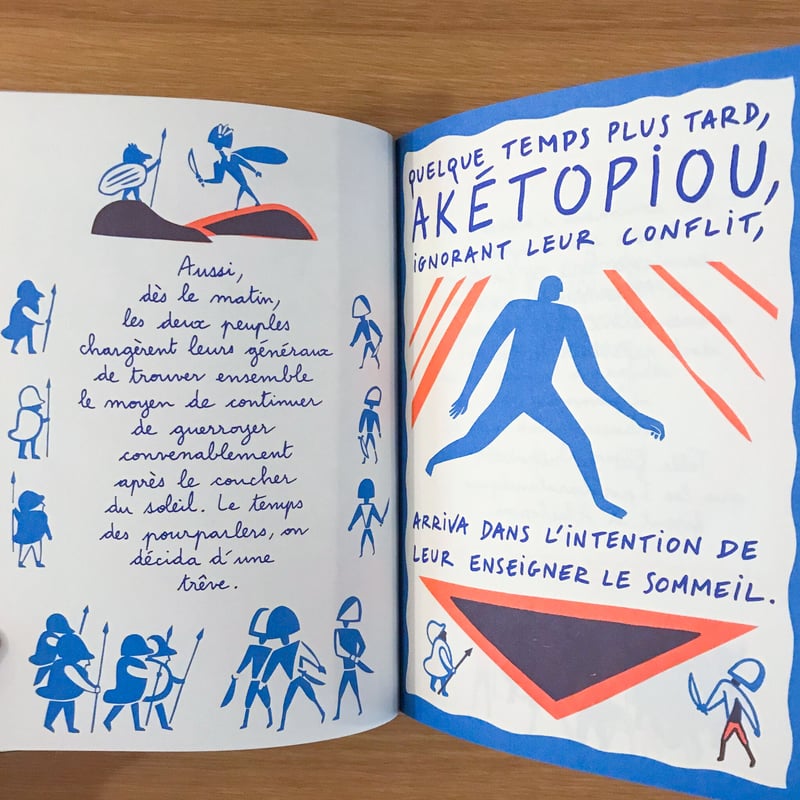 Aussi,
dès le matin,
les deux peuples
chargèrent leurs généraux
de trouver ensemble
le moyen de continuer
de guerroyer
convenablement
après le coucher
du soleil. Le temps
des pourparlers, on
décida d'une
trêve.
QUELQUE TEMPS PLUS TARD,
AKÉTOPIOU,
IGNORANT LEUR CONFLIT,
ARRIVA DANS L'INTENTION DE
LEUR ENSEIGNER LE SOMMEIL.